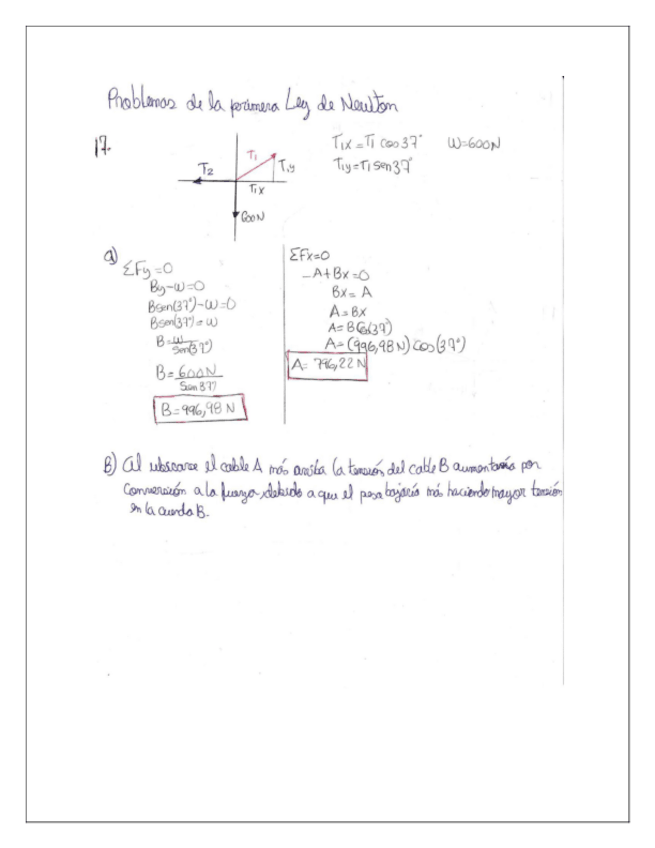 Problemas de la primera Ley de Newton
17.
T1x = T1 cos 37° W=600N
T1y = T1 sen 37°
T1
T2
T1y
T1x
600N
a)
ΣFy=0
By-W=0
Bsen(37°)-W=0
Bsen(37°)=W
B= W
Sen(37°)
B= 600N
Sen 37°
B=996,98 N
ΣFx=0
-A+Bx=0
Bx= A
A=Bx
A= B Cos(37°)
A=(996,98 N) cos(37°)
A= 796,22 N
B) Al ubicarse el cable A más arriba la tensión del cable B aumentaría por
a la fuerza debido a que el pesa bajaría más haciendo mayor tensión
en la cuerda B.